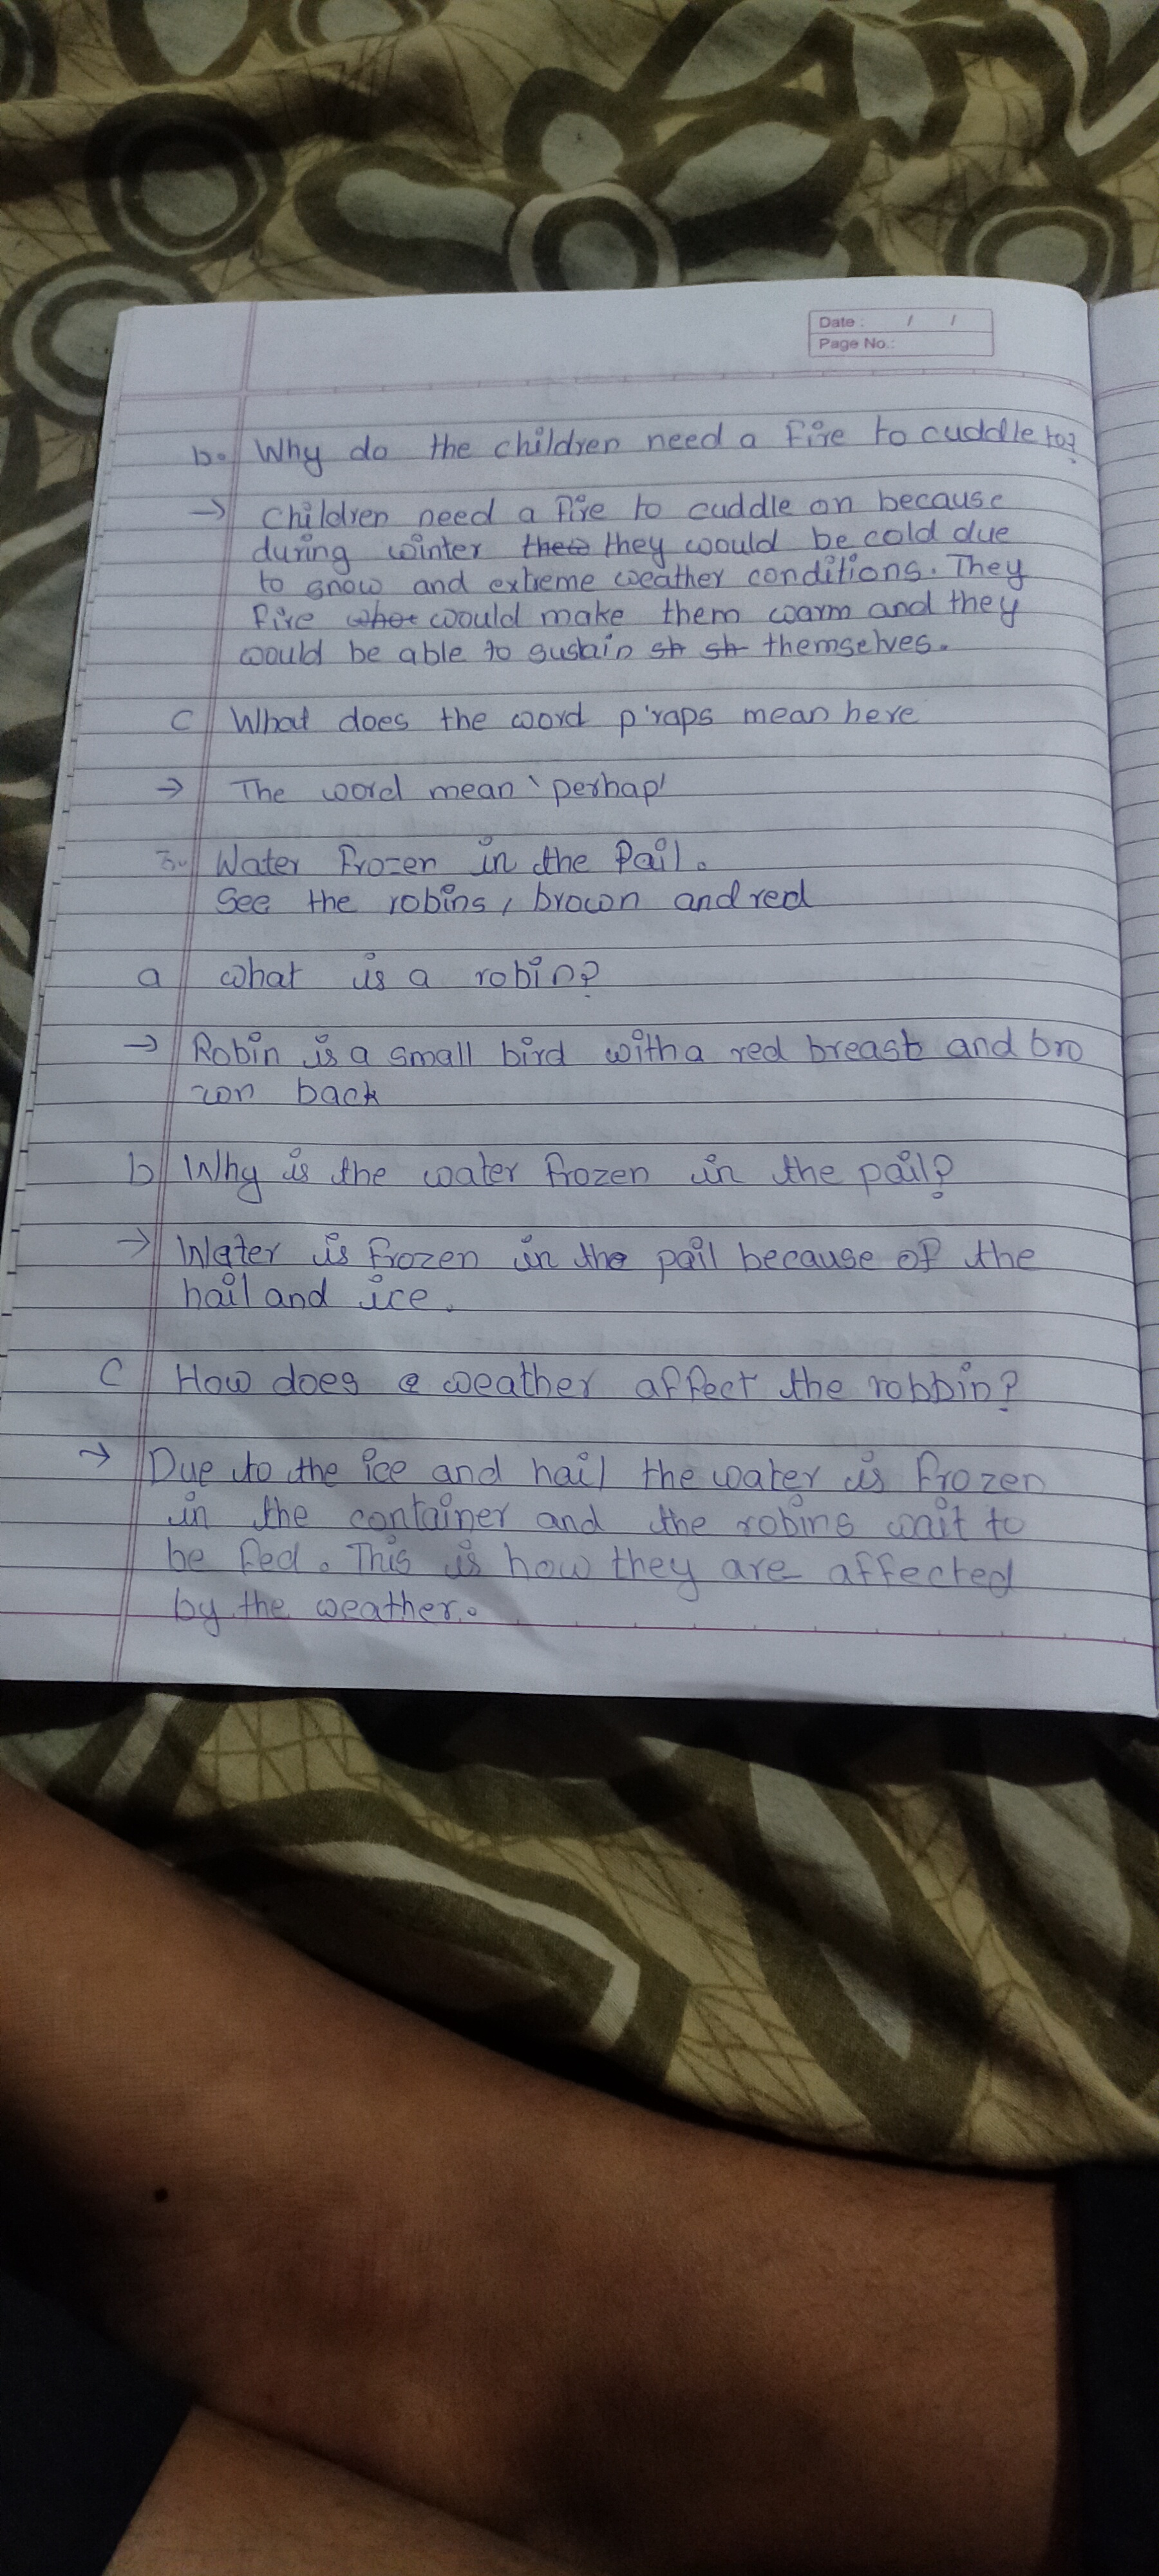 Date : / /
Page No.:
b. Why do the children need a fire to cuddle to?
→ Children need a fire to cuddle on because
during winter they would be cold due
to snow and extreme weather conditions. They
fire would make them warm and they
would be able to sustain themselves.
c What does the word p'raps mean here
→ The word mean 'perhap'
3. Water Frozen in the Pail.
See the robins, brown and red
a what is a robin?
→ Robin is a small bird with a red breast and bro
wn back
b Why is the water frozen in the pail?
→ Water is frozen in the pail because of the
hail and ice.
C How does weather affect the robbin?
→ Due to the ice and hail the water is frozen
in the container and the robins wait to
be fed. This is how they are affected
by the weather.